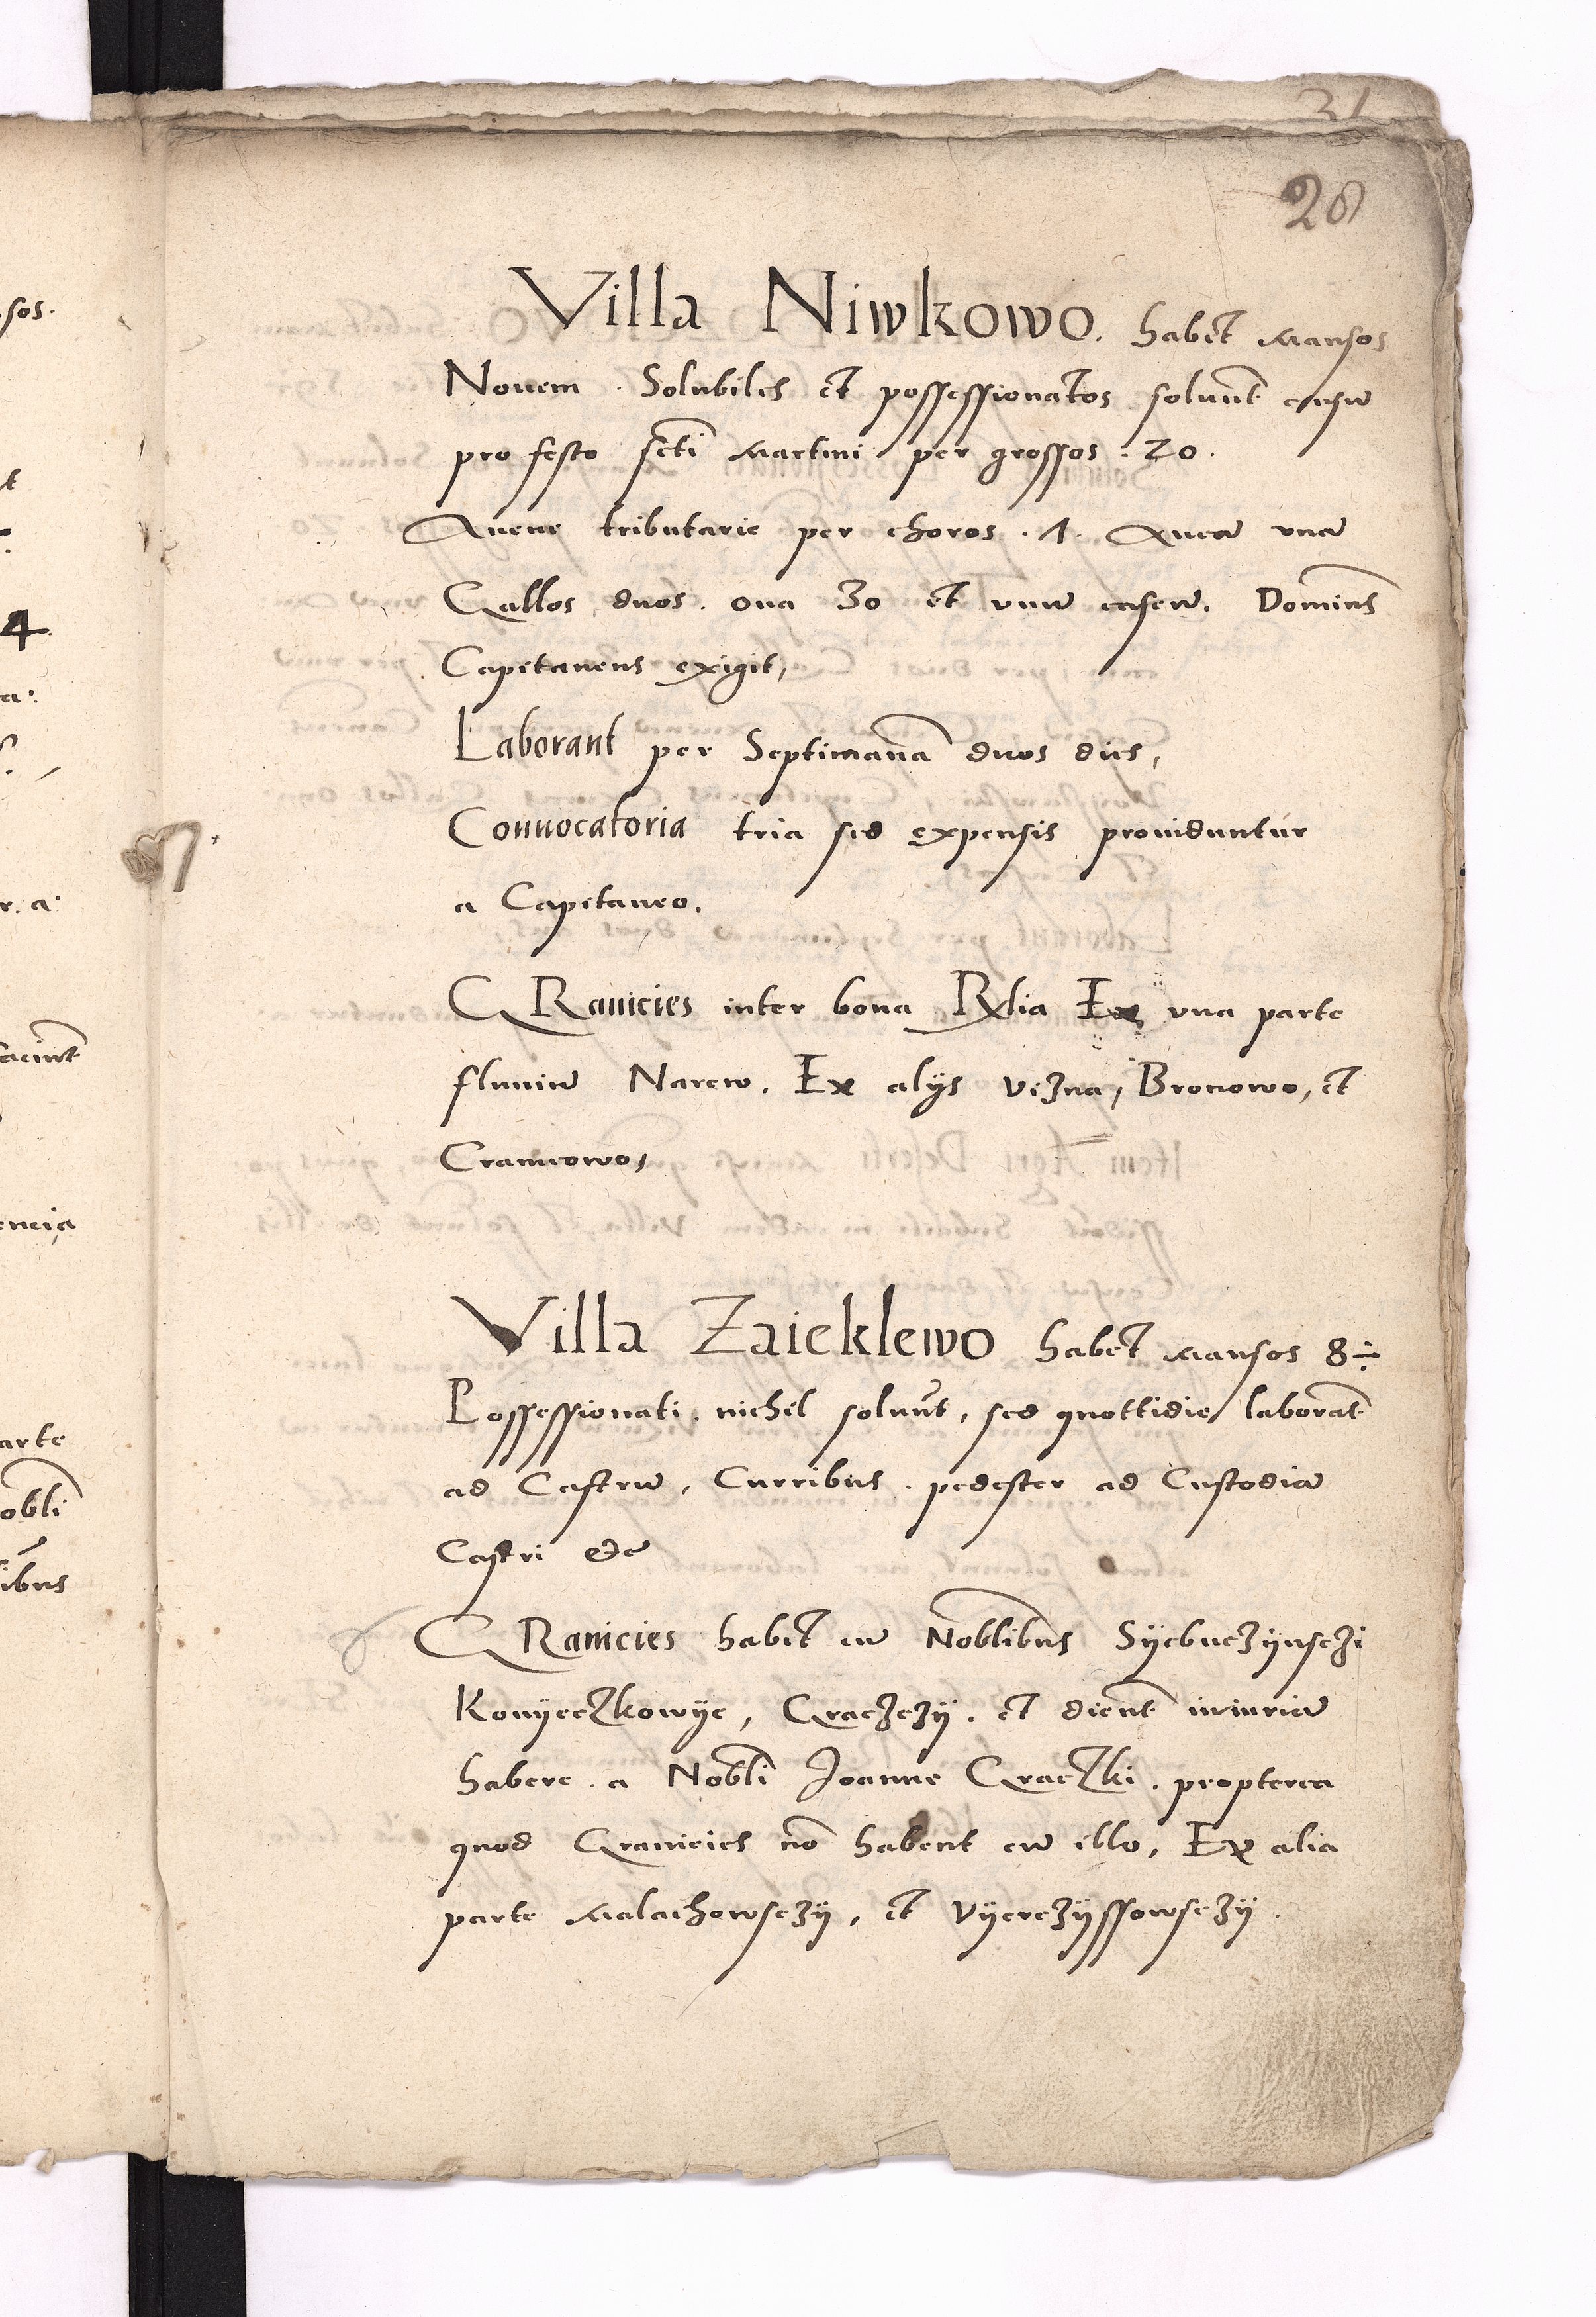 31
28
Villa Niwkowo. habet Mansos
Nouem. Solubiles et possessionatos soluunt censu
pro festo scti Martini per grossos . 20.
Auene tributarie per choros . 1. Auca una
Gallos duos. oua 30 et unu caseu. Dominus
Capitaneus exigit,
Laborant per Septimana duos dies,
Conuocatoria tria sed expensis prouiduntur
a Capitaneo.
GRanicies inter bona Rlia Ex una parte
fluuiu Narew. Ex alijs vizna, Bronowo, et
Cramcowo
Villa Zaieklewo habet Mansos 8÷
Possessionati. nichil soluut, sed quottidie laborat
ad Castru, Curribus. pedester ad Custodia
Castri etc
GRanicies habet cu Noblibus Syebuczynsczi
Konyeczkowye, Graczczy. et dicunt iniuria
habere. a Nobli Joanne Graczki. propterea
quod Granicies no habent cu illo, Ex alia
parte Malachowsczy, et Vyerczyssowsczy.
sos.
4
a:
r. a:
encia
arte
obli
ibus